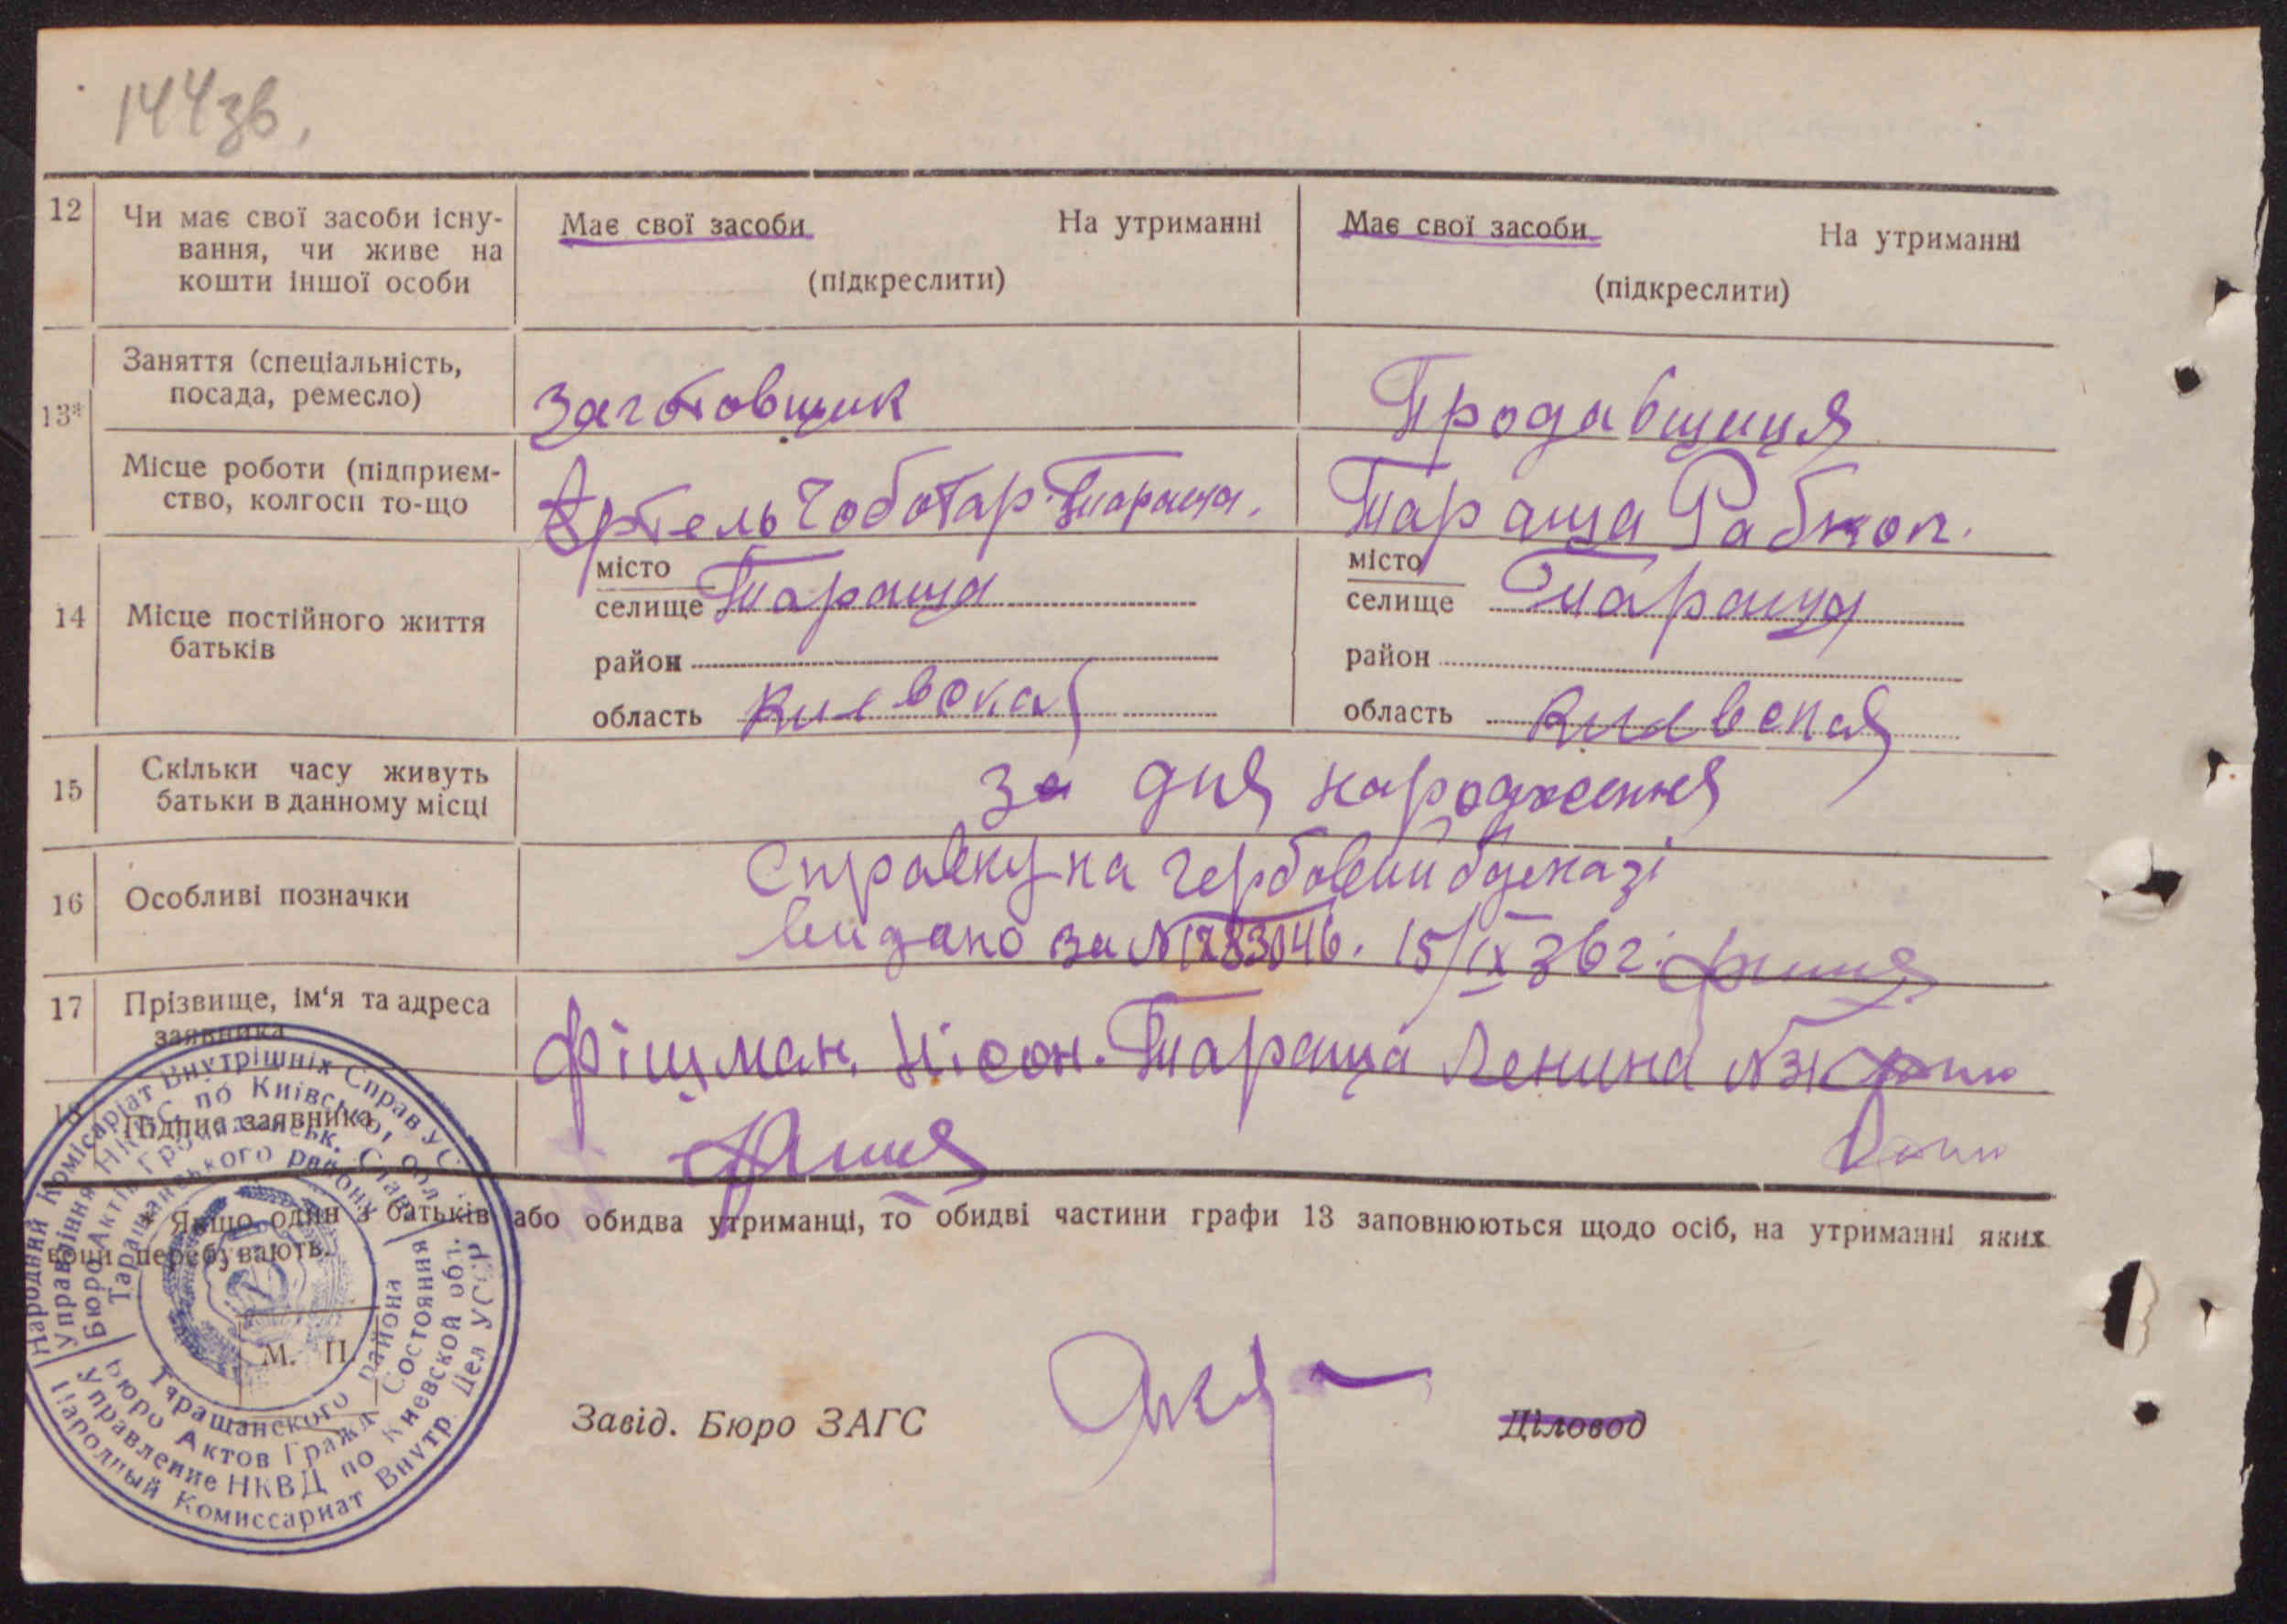 144зв.
12 Чи має свої засоби існу-
вання, чи живе на
кошти іншої особи
Має свої засоби На утриманні
(підкреслити)
Має свої засоби На утриманні
(підкреслити)
13*
Заняття (спеціальність,
посада, ремесло)
Заготовщик
Продавщиця
Місце роботи (підприєм-
ство, колгосп то-що
Артель Чоботар Тараща.
Тараща Рабкоп.
14 Місце постійного життя
батьків
місто
селище Тараща
район
область Киевская
місто
селище Тараща
район
область Киевская
15 Скільки часу живуть
батьки в данному місці
За дня народження
16 Особливі позначки
Справку на гербовий бумазі
видано за N1283046. 15/IX 36 г.
17 Прізвище, ім'я та адреса
заявника
Фішман. Нісон. Тараща Ленина N31
18 Підпис заявника
* Якщо один з батьків або обидва утриманці, то обидві частини графи 13 заповнюються щодо осіб, на утриманні яких
вони перебувають.
М. П.
Завід. Бюро ЗАГС
Діловод
Народний Комісаріат Внутрішніх Справ УСРР
Управління НКВС по Київській обл.
Бюро Актів Громадянськ. Стану
Таращанського району
Таращанского района
Бюро Актов Гражд. Состояния
Управление НКВД по Киевской обл.
Народный Комиссариат Внутр. Дел УССР